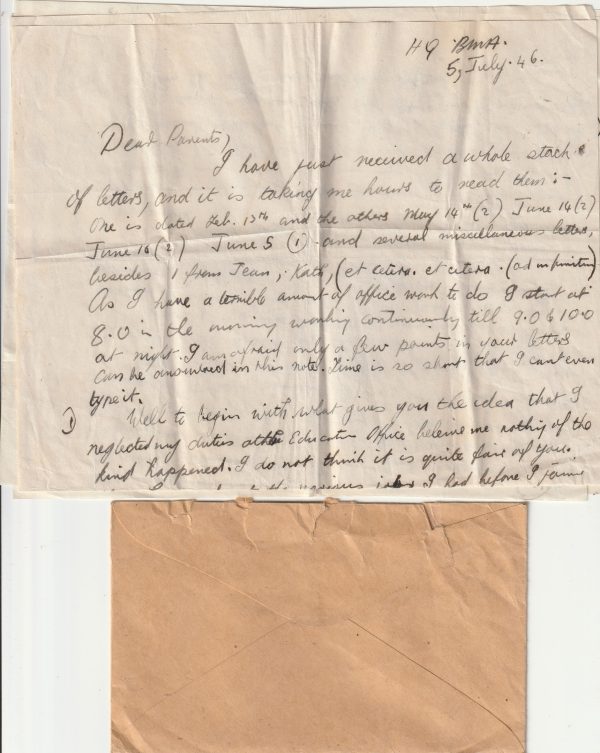 HQ BMA.
5, July. 46.
Dear Parents,
I have just received a whole stack
of letters, and it is taking me hours to read them :-
One is dated Feb. 13th and the others May 14th (2) June 14 (2)
June 16 (2) June 5 (1) and several miscellaneous letters,
besides 1 from Jean, Kath, (et cetera. et cetera. (ad infinitum)
As I have a terrible amount of office work to do I start at
8.0 in the morning working continuously till 9.0 & 10.0
at night. I am afraid only a few points in your letters
can be answered in this note. Time is so short that I cant even
type it.
1) Well to begin with what gives you the idea that I
neglected my duties at the Education Office believe me nothing of the
kind happened. I do not think it is quite fair of you.
the various jobs I had before I